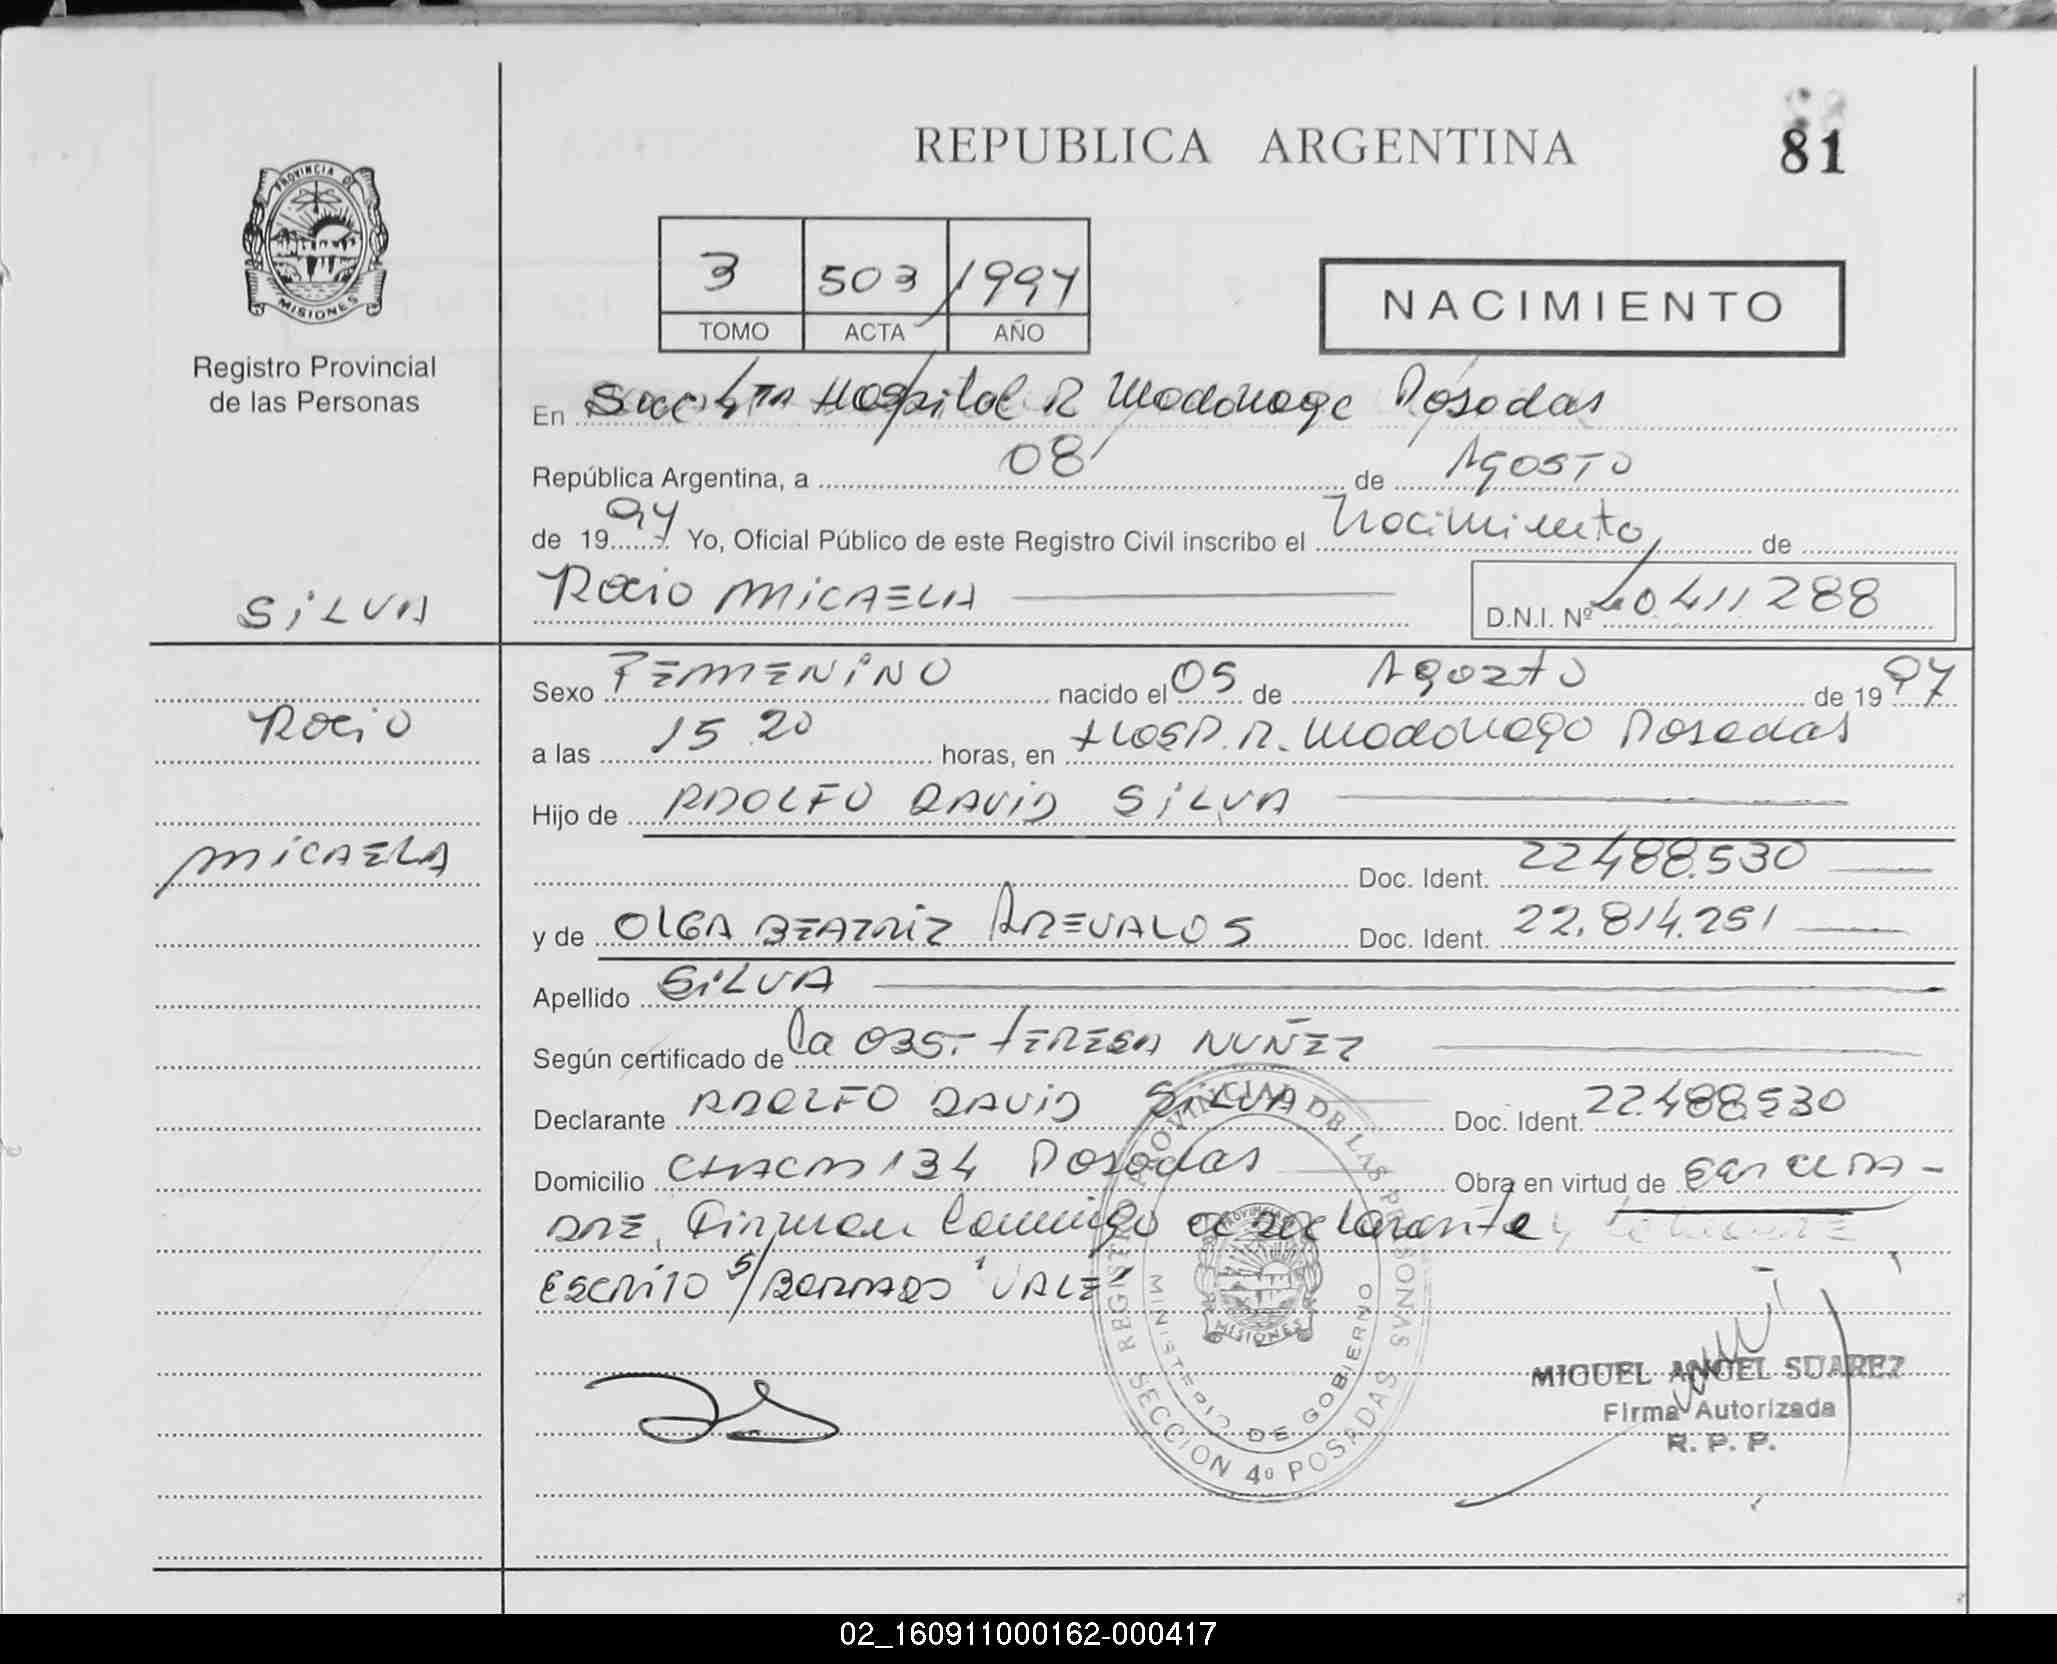 REPUBLICA ARGENTINA
81
PROVINCIA DE
MISIONES
Registro Provincial
de las Personas
3 503 1997
TOMO ACTA AÑO
NACIMIENTO
En Secc 4ta Hospital R Madariaga Posadas
República Argentina, a 08 de AGOSTO
de 1997 Yo, Oficial Público de este Registro Civil inscribo el Nacimiento de
SiLVA
Rocio MiCAELA
D.N.I. Nº 40411288
Sexo FEMENiNO nacido el 05 de Agosto de 1997
Rocio
a las 15 20 horas, en HOSP. R. Madariaga Posadas
Hijo de ADOLFO DAViD SiLVA
MiCAELA
Doc. Ident. 22488.530
y de OLGA BEATRiZ AREVALOS Doc. Ident. 22.814.251
Apellido SiLVA
Según certificado de la OBST. TERESA NUÑEZ
Declarante ADOLFO DAViD SiLVA Doc. Ident. 22.488.530
Domicilio CHACRA 134 Posadas Obra en virtud de
Firman conmigo el declarante y
ESCRITO S/BORRADO "VALE"
REGISTRO PROVINCIAL DE LAS PERSONAS
MINISTERIO DE GOBIERNO
PROVINCIA DE
MISIONES
SECCION 4º POSADAS
MIGUEL ANGEL SUAREZ
Firma Autorizada
R. P. P.
02_160911000162-000417